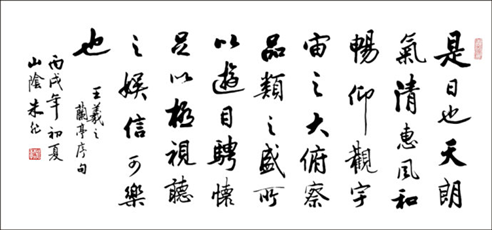 是日也天朗
氣清惠風和
暢仰觀宇
宙之大俯察
品類之盛所
以遊目騁懷
足以極視聽
之娛信可樂
也
王羲之
蘭亭序句
丙戌年初夏
山陰朱